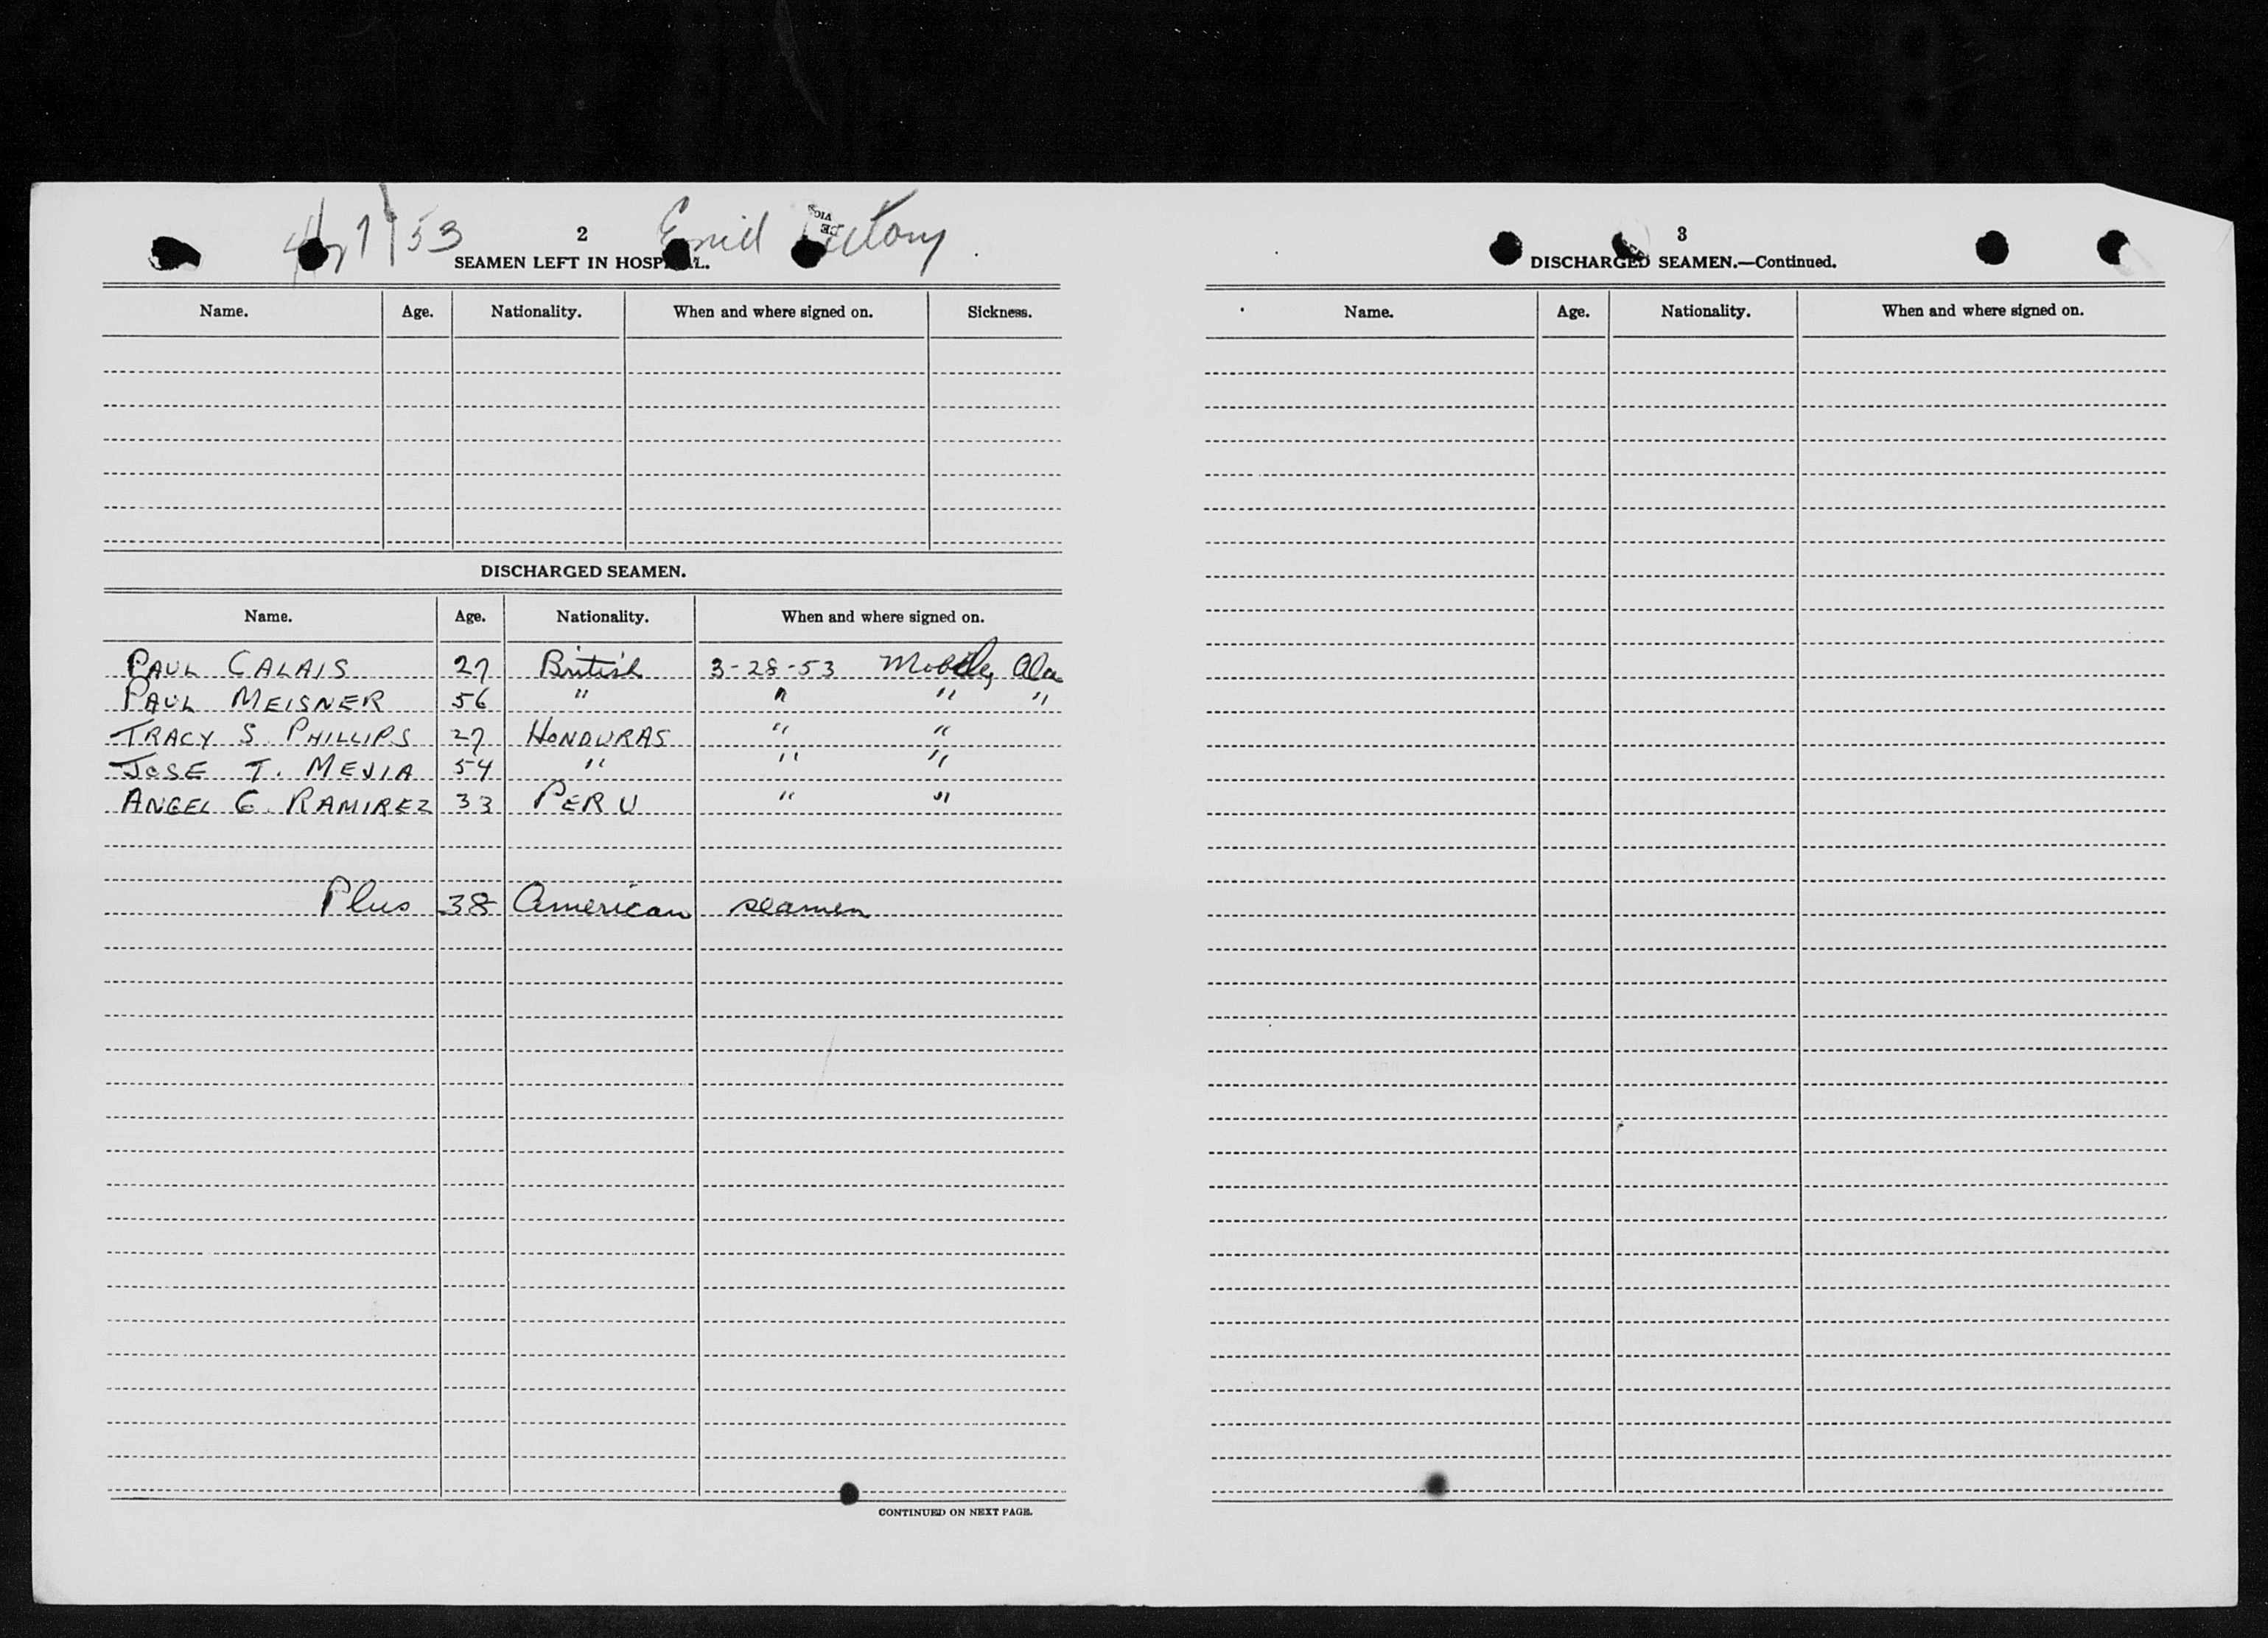 53 2
SEAMEN LEFT IN HOSPITAL.
Name. Age. Nationality. When and where signed on. Sickness.
DISCHARGED SEAMEN.
Name. Age. Nationality. When and where signed on.
PAUL CALAIS 27 British 3-28-53 Mobile, Ala
PAUL MEISNER 56 " " " "
TRACY S. PHILLIPS 27 HONDURAS " "
JOSE T. MEJIA 54 " " "
ANGEL G. RAMIREZ 33 PERU " "
Plus 38 American seamen
CONTINUED ON NEXT PAGE.
3
DISCHARGED SEAMEN.—Continued.
Name. Age. Nationality. When and where signed on.